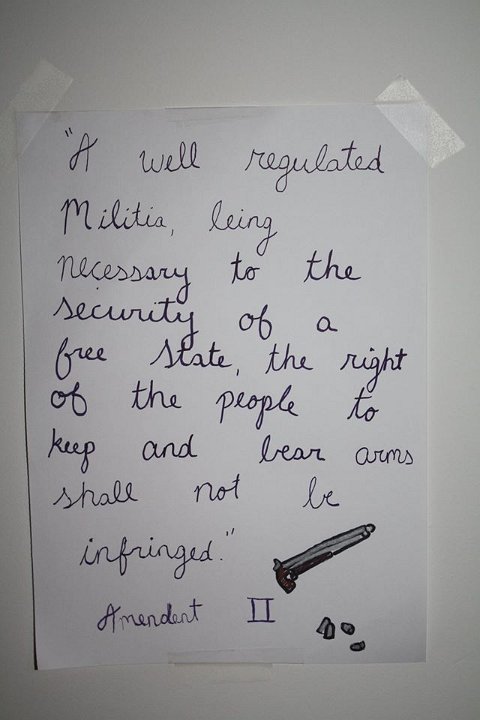 "A well regulated
Militia, being
necessary to the
security of a
free State, the right
of the people to
keep and bear arms
shall not be
infringed."
Amendent II